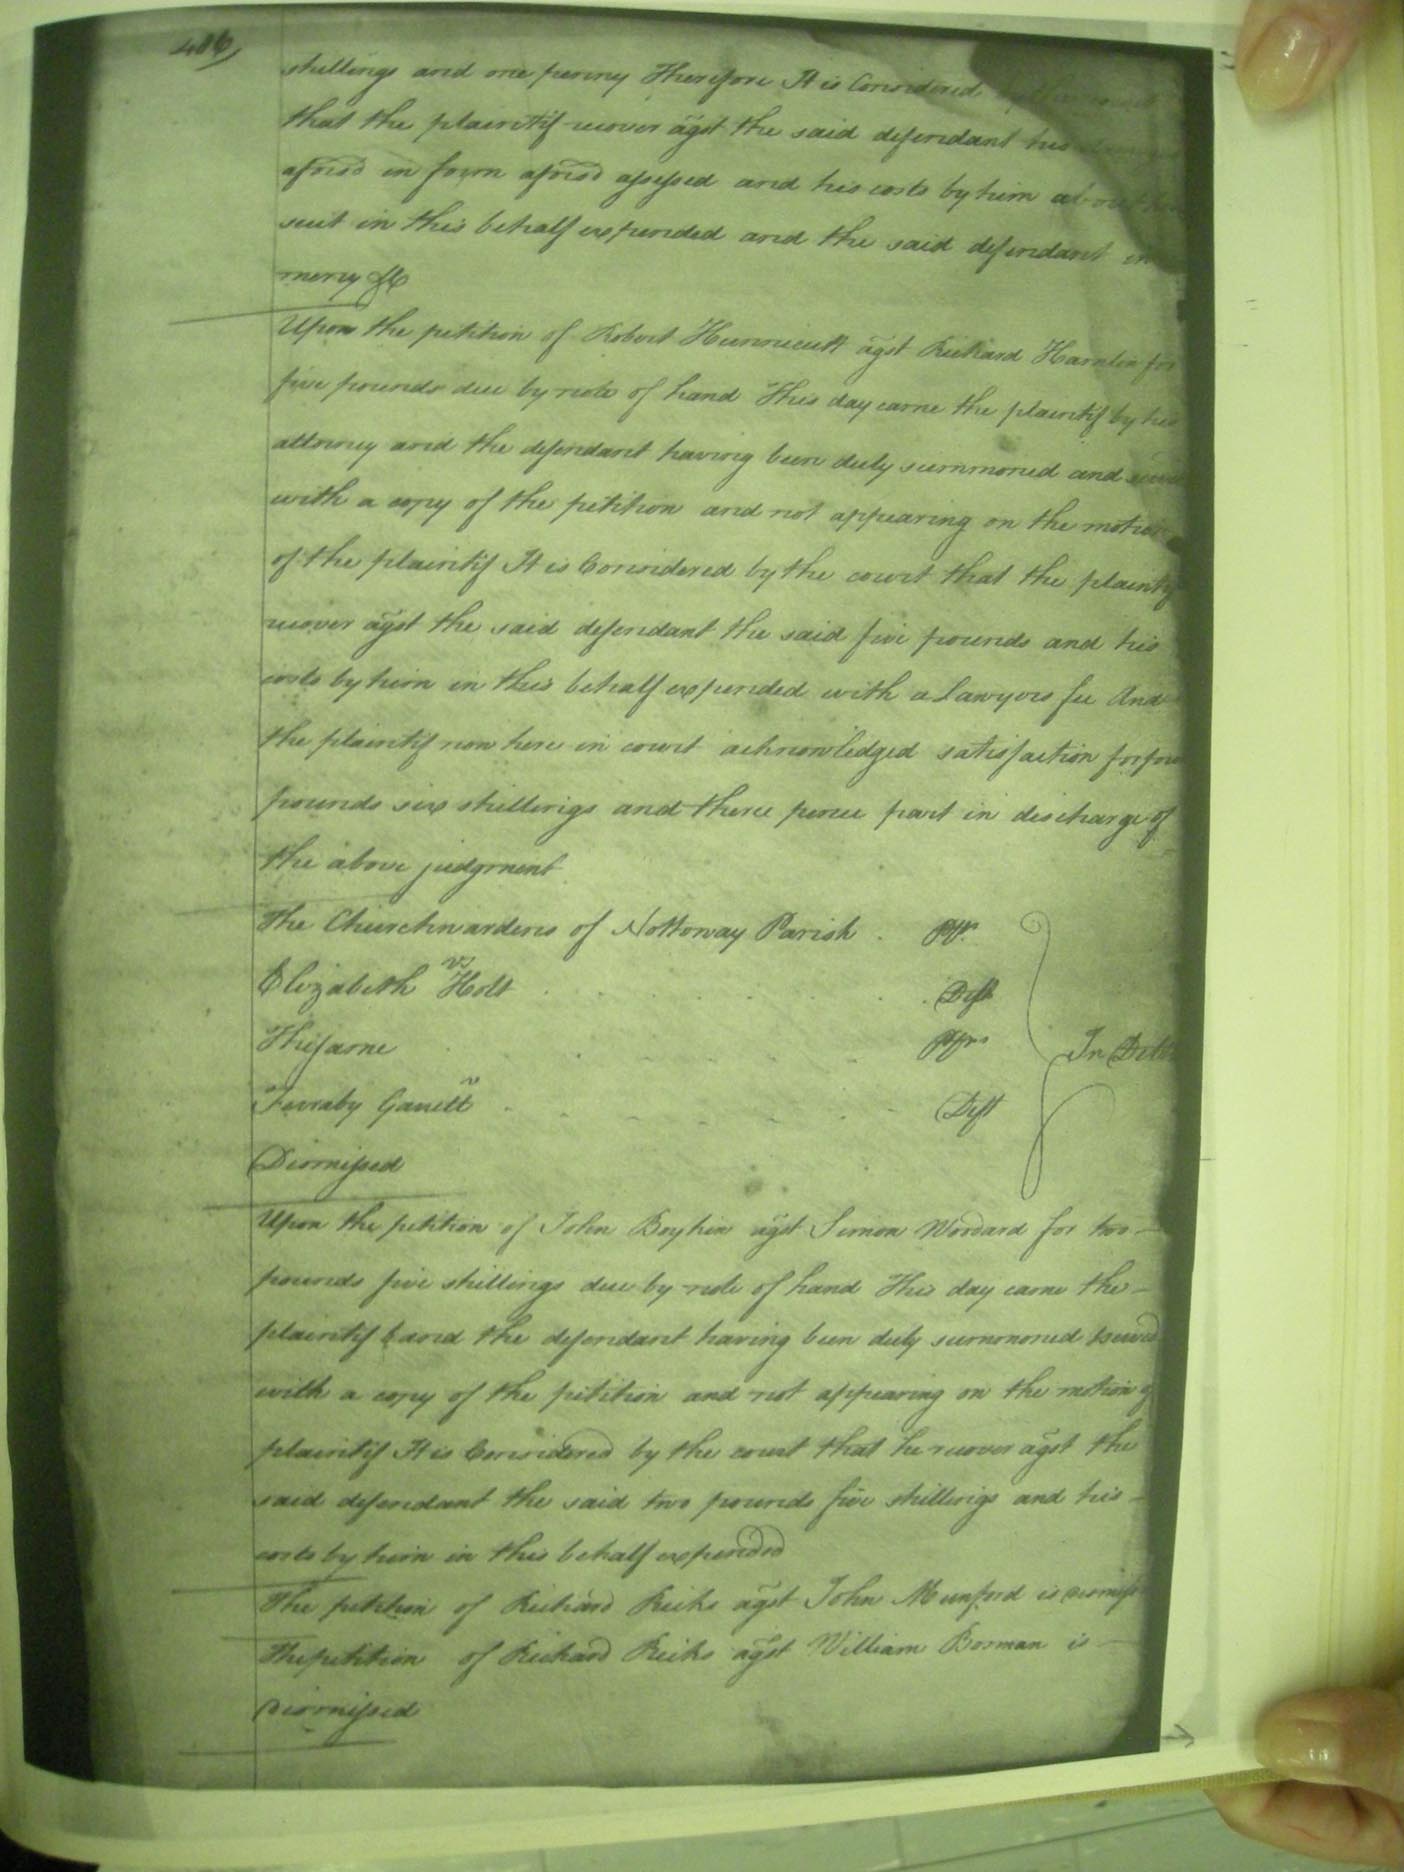 486
shillings and one penny Therefore It is Considered
that the plaintif recover agst the said defendant his
aforisd in form aforisd assessed and his costs by him about
suit in this behalf expended and the said defendant in
mercy &c
Upon the petition of Robert Hunnicutt agst Richard Hamlin for
five pounds due by note of hand This day came the plaintif by his
attorney and the defendant having been duly summoned and
with a copy of the petition and not appearing on the motion
of the plaintif It is Considered by the court that the plaintif
recover agst the said defendant the said five pounds and his
costs by him in this behalf expended with a Lawyers fee And
the plaintif now here in court acknowledged satisfaction for four
pounds six shillings and there pence part in discharge of
the above judgment
The Churchwardens of Nottoway Parish . Plts
vs
Elizabeth Holt . . . . . . . Deft
The same . . . . . Plfs In Debt
v
Ferraby Ganett . . . . . . Deft
Dismissed
Upon the petition of John Boykin agst Simon Woodard for two
pounds five shillings due by note of hand This day came the
plaintif & and the defendant having been duly summoned
with a copy of the petition and not appearing on the motion of
plaintif It is Considered by the court that he recover agst the
said defendant the said two pounds five shillings and his
costs by him in this behalf expended
The petition of Richard Ricks agst John Munford is
The petition of Richard Ricks agst William Bosman is
Dismissed